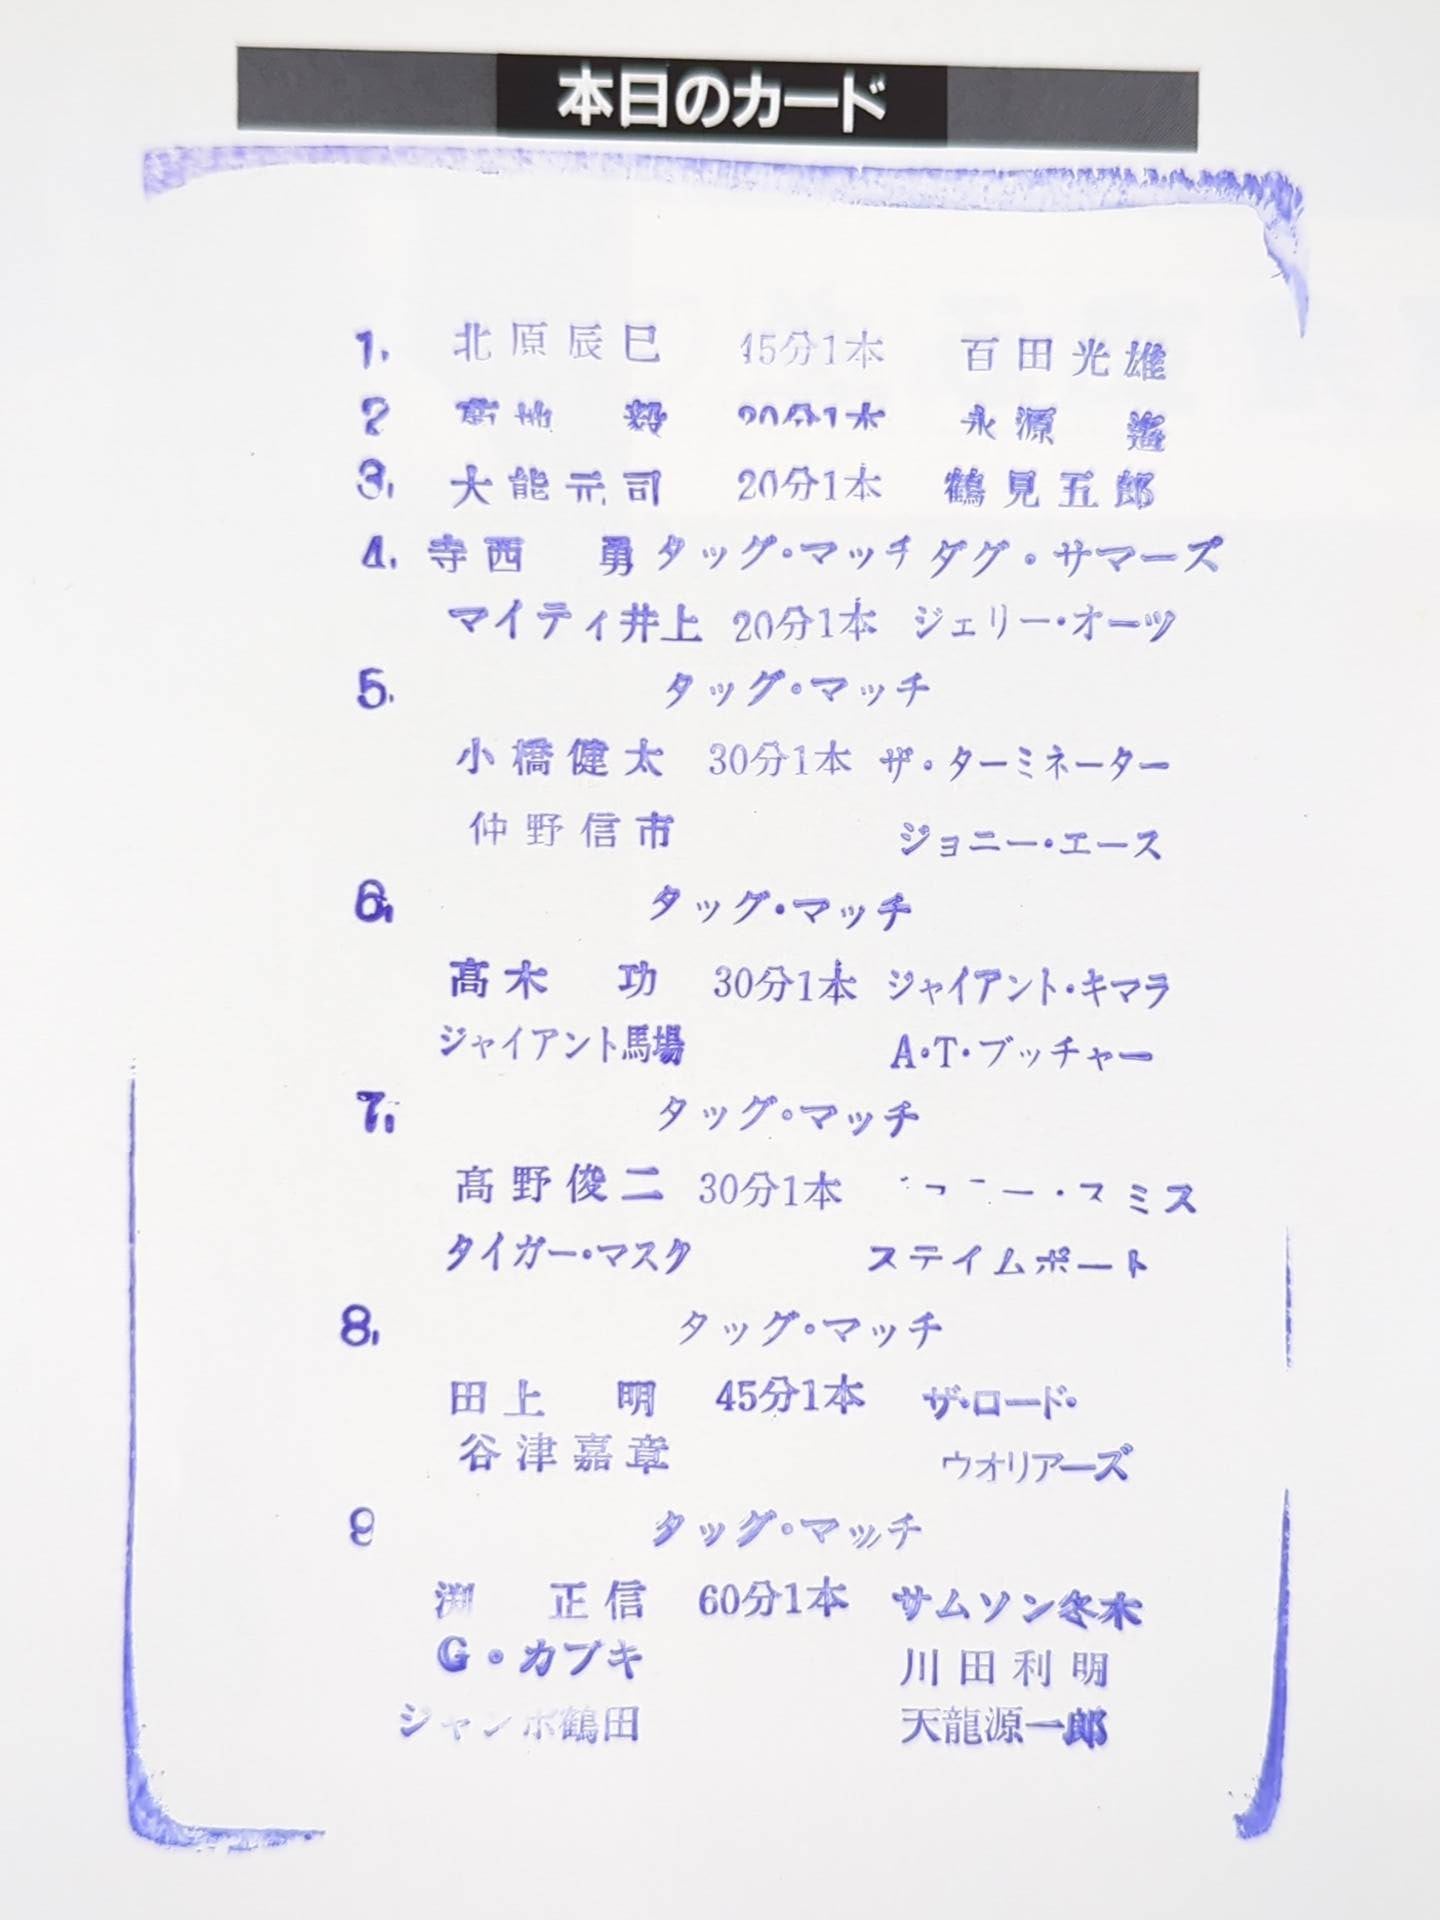 本日のカード
1. 北原辰巳 45分1本 百田光雄
2 菊地 毅 20分1本 永源 遙
3. 大熊元司 20分1本 鶴見五郎
4. 寺西 勇 タッグ・マッチ ダグ・サマーズ
マイティ井上 20分1本 ジェリー・オーツ
5. タッグ・マッチ
小橋健太 30分1本 ザ・ターミネーター
仲野信市 ジョニー・エース
6. タッグ・マッチ
高木 功 30分1本 ジャイアント・キマラ
ジャイアント馬場 A・T・ブッチャー
7. タッグ・マッチ
高野俊二 30分1本 ・スミス
タイガー・マスク ステイムボート
8. タッグ・マッチ
田上 明 45分1本 ザ・ロード・
谷津嘉章 ウオリアーズ
9 タッグ・マッチ
渕 正信 60分1本 サムソン冬木
G・カブキ 川田利明
ジャンボ鶴田 天龍源一郎